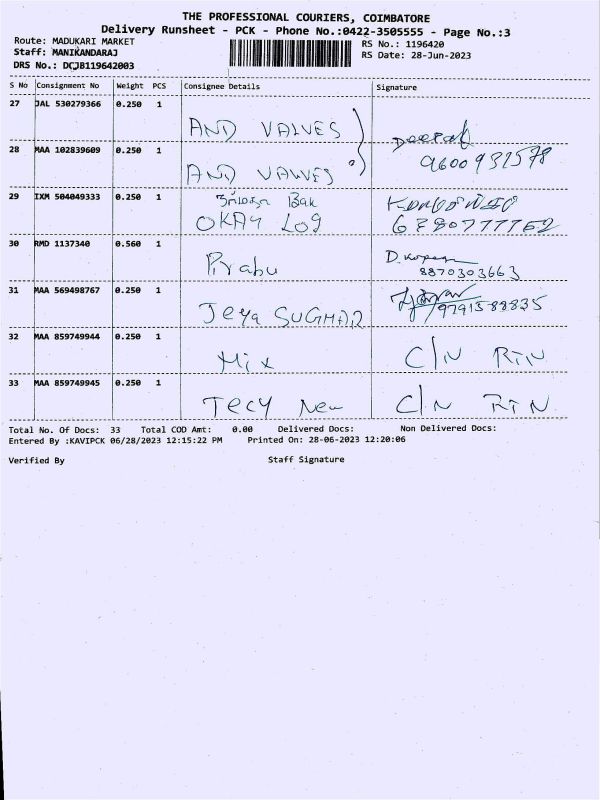 THE PROFESSIONAL COURIERS, COIMBATORE
Delivery Runsheet - PCK - Phone No.:0422-3505555 - Page No.:3
Route: MADUKARI MARKET
Staff: MANIKANDARAJ
DRS No.: DCJB119642003
RS No.: 1196420
RS Date: 28-Jun-2023
S No Consignment No Weight PCS Consignee Details Signature
27 JAL 530279366 0.250 1 AND VALVES Deepak
28 MAA 102839609 0.250 1 AND VALVES 9600931578
29 IXM 504049333 0.250 1
OKAY LOG 6380777762
30 RMD 1137340 0.560 1 Prabu
8870303663
31 MAA 569498767 0.250 1 Jeya SUGMAR 9791588835
32 MAA 859749944 0.250 1 Mix C/N RTN
33 MAA 859749945 0.250 1 Tecy New C/N RTN
Total No. Of Docs: 33 Total COD Amt: 0.00 Delivered Docs: Non Delivered Docs:
Entered By :KAVIPCK 06/28/2023 12:15:22 PM Printed On: 28-06-2023 12:20:06
Verified By Staff Signature